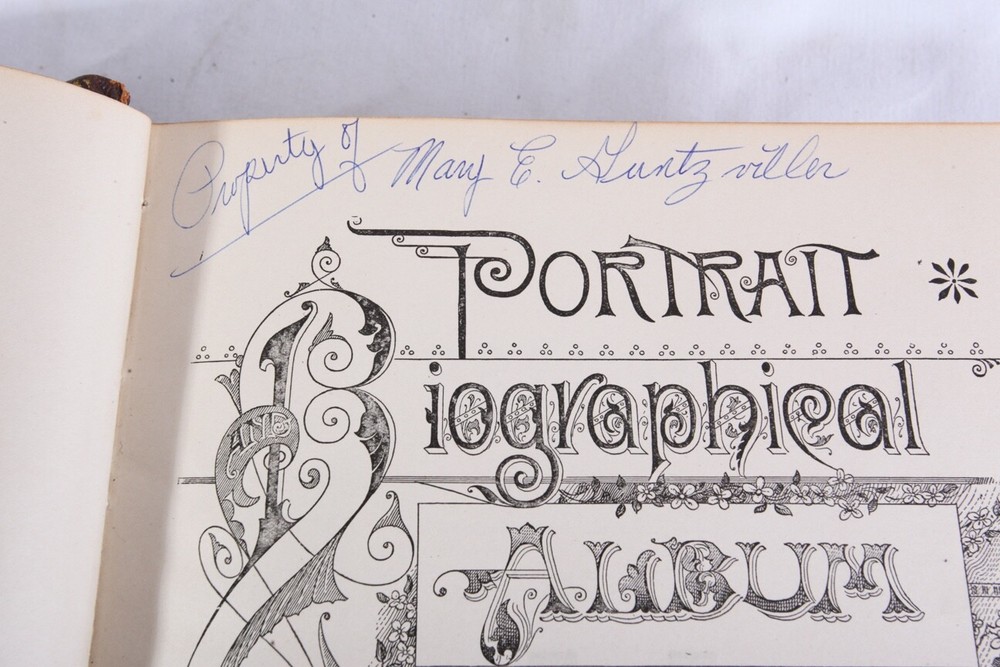 Property of Mary E. Guntzviller
PORTRAIT
AND
Biographical
ALBUM